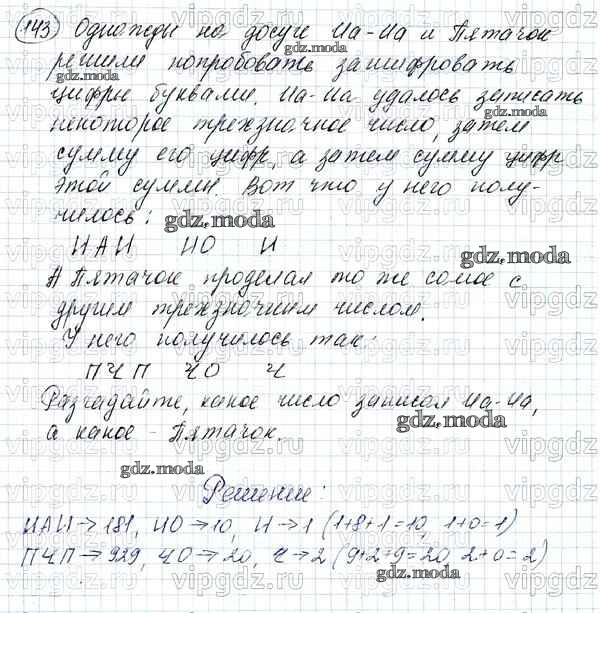 143 Однажды на досуге Иа-Иа и Пятачок
решили попробовать зашифровать
gdz.moda
цифры буквами. Иа-Иа удалось записать
некоторое трехзначное число, затем
gdz.moda
сумму его цифр, а затем сумму цифр
этой суммы. Вот что у него полу-
чилось: gdz.moda
ИАИ ИО И
gdz.moda
А Пятачок проделал то же самое с
другим трехзначным числом.
У него получилось так:
ПЧП ЧО Ч
Разгадайте, какое число записал Иа-Иа,
gdz.moda
а какое Пятачок.
gdz.moda
Решение:
ИАИ → 181, ИО → 10, И → 1 (1+8+1=10, 1+0=1)
ПЧП → 929, ЧО → 20, Ч → 2 (9+2+9=20 2+0=2)
gdz.moda
vipgdz.ru